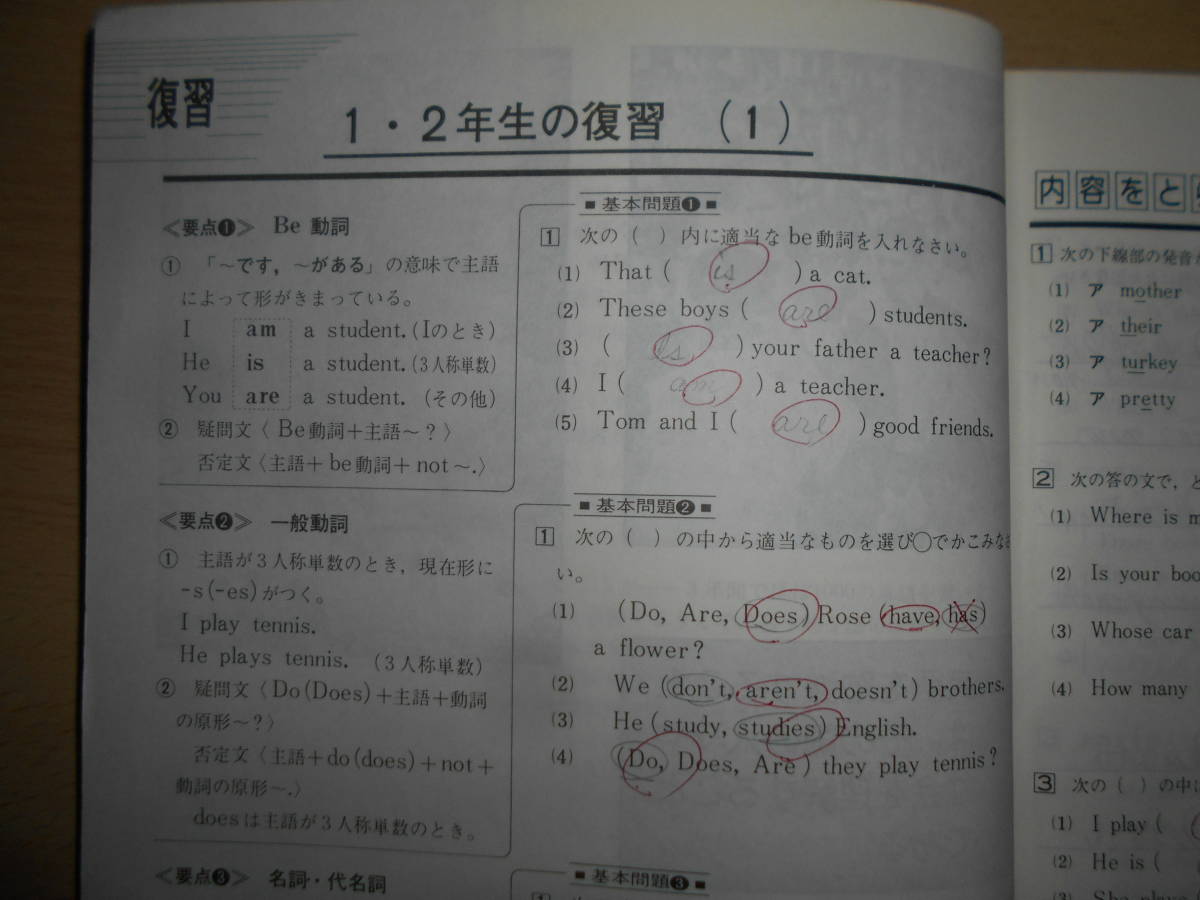 復習
1・2年生の復習 (1)
≪要点❶≫ Be 動詞
① 「～です，～がある」の意味で主語
によって形がきまっている。
I am a student.(Iのとき)
He is a student.(3人称単数)
You are a student. (その他)
② 疑問文〈Be動詞+主語～？〉
否定文〈主語+be動詞+not～.〉
≪要点❷≫ 一般動詞
① 主語が3人称単数のとき，現在形に
-s(-es)がつく。
I play tennis.
He plays tennis. (3人称単数)
② 疑問文〈Do(Does)+主語+動詞
の原形～?〉
否定文〈主語+do(does)+not+
動詞の原形～.〉
doesは主語が3人称単数のとき。
≪要点❸≫ 名詞・代名詞
■基本問題❶■
1 次の( )内に適当なbe動詞を入れなさい。
(1) That ( is ) a cat.
(2) These boys ( are ) students.
(3) ( Is ) your father a teacher?
(4) I ( am ) a teacher.
(5) Tom and I ( are ) good friends.
■基本問題❷■
1 次の( )の中から適当なものを選び○でかこみなさ
い。
(1) (Do, Are, Does) Rose (have, has)
a flower?
(2) We (don't, aren't, doesn't) brothers.
(3) He (study, studies) English.
(4) (Do, Does, Are) they play tennis?
■基本問題❸■
内容をと
1 次の下線部の発音が
(1) ア mother
(2) ア their
(3) ア turkey
(4) ア pretty
2 次の答の文で，と
(1) Where is m
(2) Is your boo
(3) Whose car
(4) How many
3 次の( )の中に
(1) I play (
(2) He is (